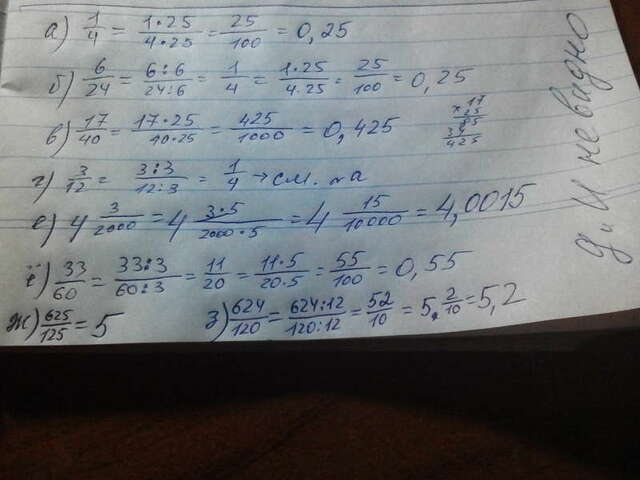 а) 1/4 = 1·25/4·25 = 25/100 = 0,25
б) 6/24 = 6:6/24:6 = 1/4 = 1·25/4·25 = 25/100 = 0,25
в) 17/40 = 17·25/40·25 = 425/1000 = 0,425
×17
25
85
34
425
г) 3/12 = 3:3/12:3 = 1/4 → см. а
е) 4 3/2000 = 4 3·5/2000·5 = 4 15/10000 = 4,0015
ё) 33/60 = 33:3/60:3 = 11/20 = 11·5/20·5 = 55/100 = 0,55
ж) 625/125 = 5
з) 624/120 = 624:12/120:12 = 52/10 = 5 2/10 = 5,2
д и и не видно